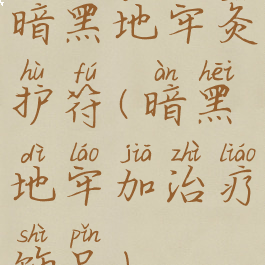 暗黑地牢灸
hù fú àn hēi
护符(暗黑
dì láo jiā zhì liáo
地牢加治疗
shì pǐn
饰品)